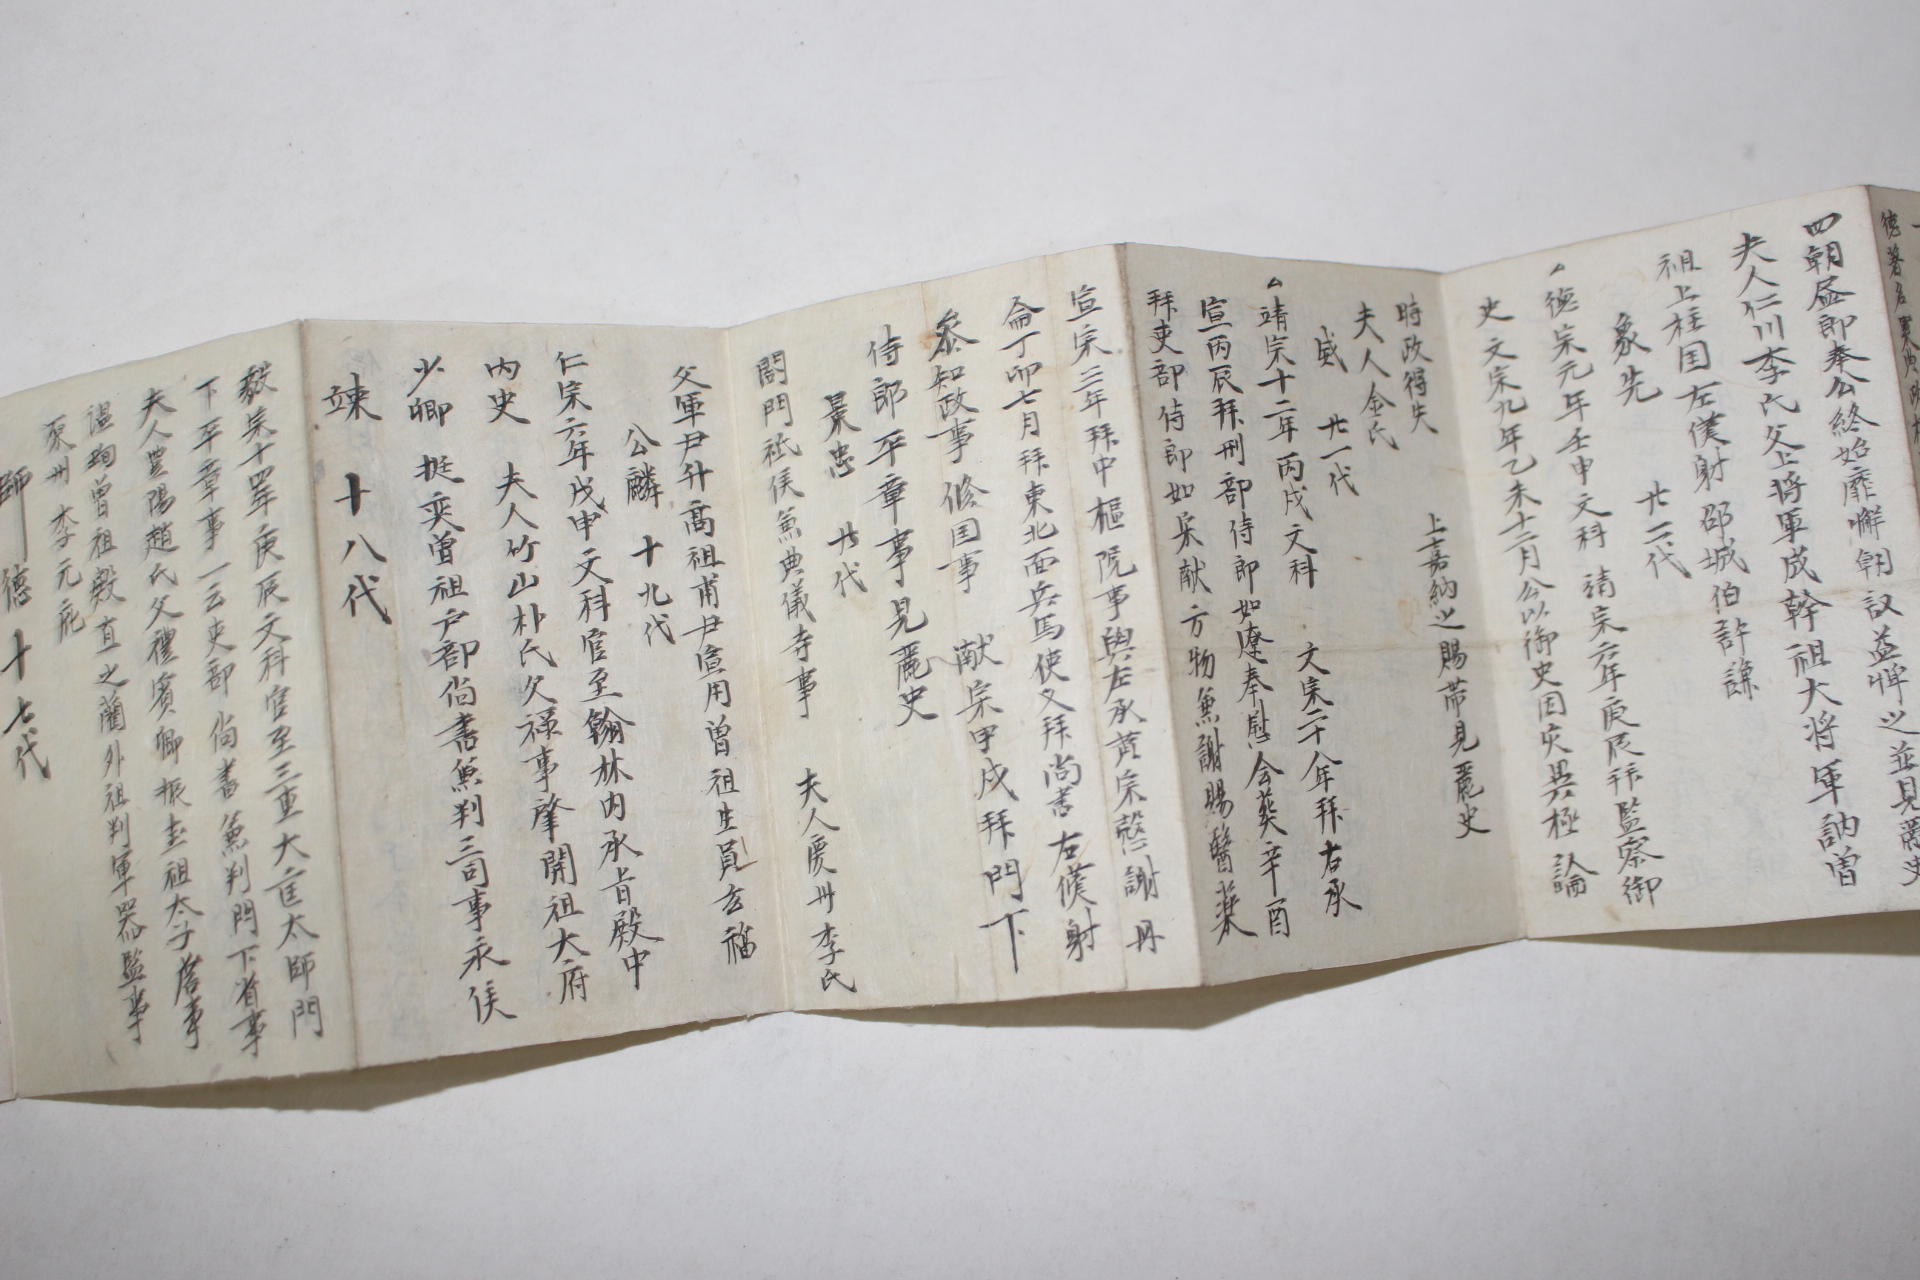 德著名
四朝盡節奉公終始靡懈朝議益惲之並見麗史
夫人仁川李氏父上將軍成幹祖大將軍訥曾
祖上柱国左僕射邵城伯許謙
象先 廿二代
德宗元年壬申文科 靖宗六年庚辰拜監察御
史文宗九年乙未十二月公以御史因灾異極論
時政得失 上嘉納之賜帶見麗史
夫人金氏
威 廿一代
靖宗十二年丙戌文科 文宗二十八年拜右承
宣丙辰拜刑部侍郎如遼奉慰会葬辛酉
拜吏部侍郎如宋献方物兼謝賜醫藥
宣宗三年拜中樞院事與左承黄宗慤謝丹
侖丁卯七月拜東北面兵馬使又拜尚書右僕射
參知政事修国事 献宗甲戌拜門下
侍郎平章事見麗史
景忠 廿代
閤門祗侯兼典儀寺事 夫人慶州李氏
父軍尹升高祖甫尹宣用曾祖生員玄福
公麟 十九代
仁宗六年戊申文科官至翰林内承旨殿中
内史 夫人竹山朴氏父祿事肇開祖太府
少卿挺奕曾祖户部尚書兼判三司事永侯
竦 十八代
毅宗十四年庚辰文科官至三重大匡太師門
下平章事一云吏部尚書兼判門下省事
夫人豊陽趙氏父禮賓卿振圭祖太子詹事
温珣曾祖殿直之藺外祖判軍器監事
原州李元庇
師德 十七代